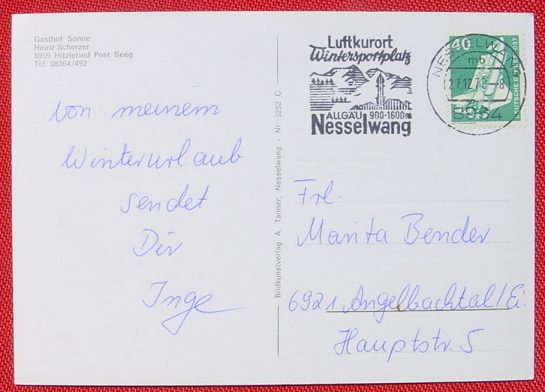 Gasthof Sonne
Heinz Scherzer
8959 Hitzleried Post Seeg
Tel. 08364/492
von meinem
Winterurlaub
sendet
Dir
Inge
Bildkunstverlag A. Tanner, Nesselwang - Nr. 3252 C
Luftkurort
Wintersportplatz
ALLGÄU 900-1600m
Nesselwang
40
DEUTSCHE BUNDESPOST
Frl.
Marita Bender
6921 Angelbachtal/Ei.
Hauptstr. 5